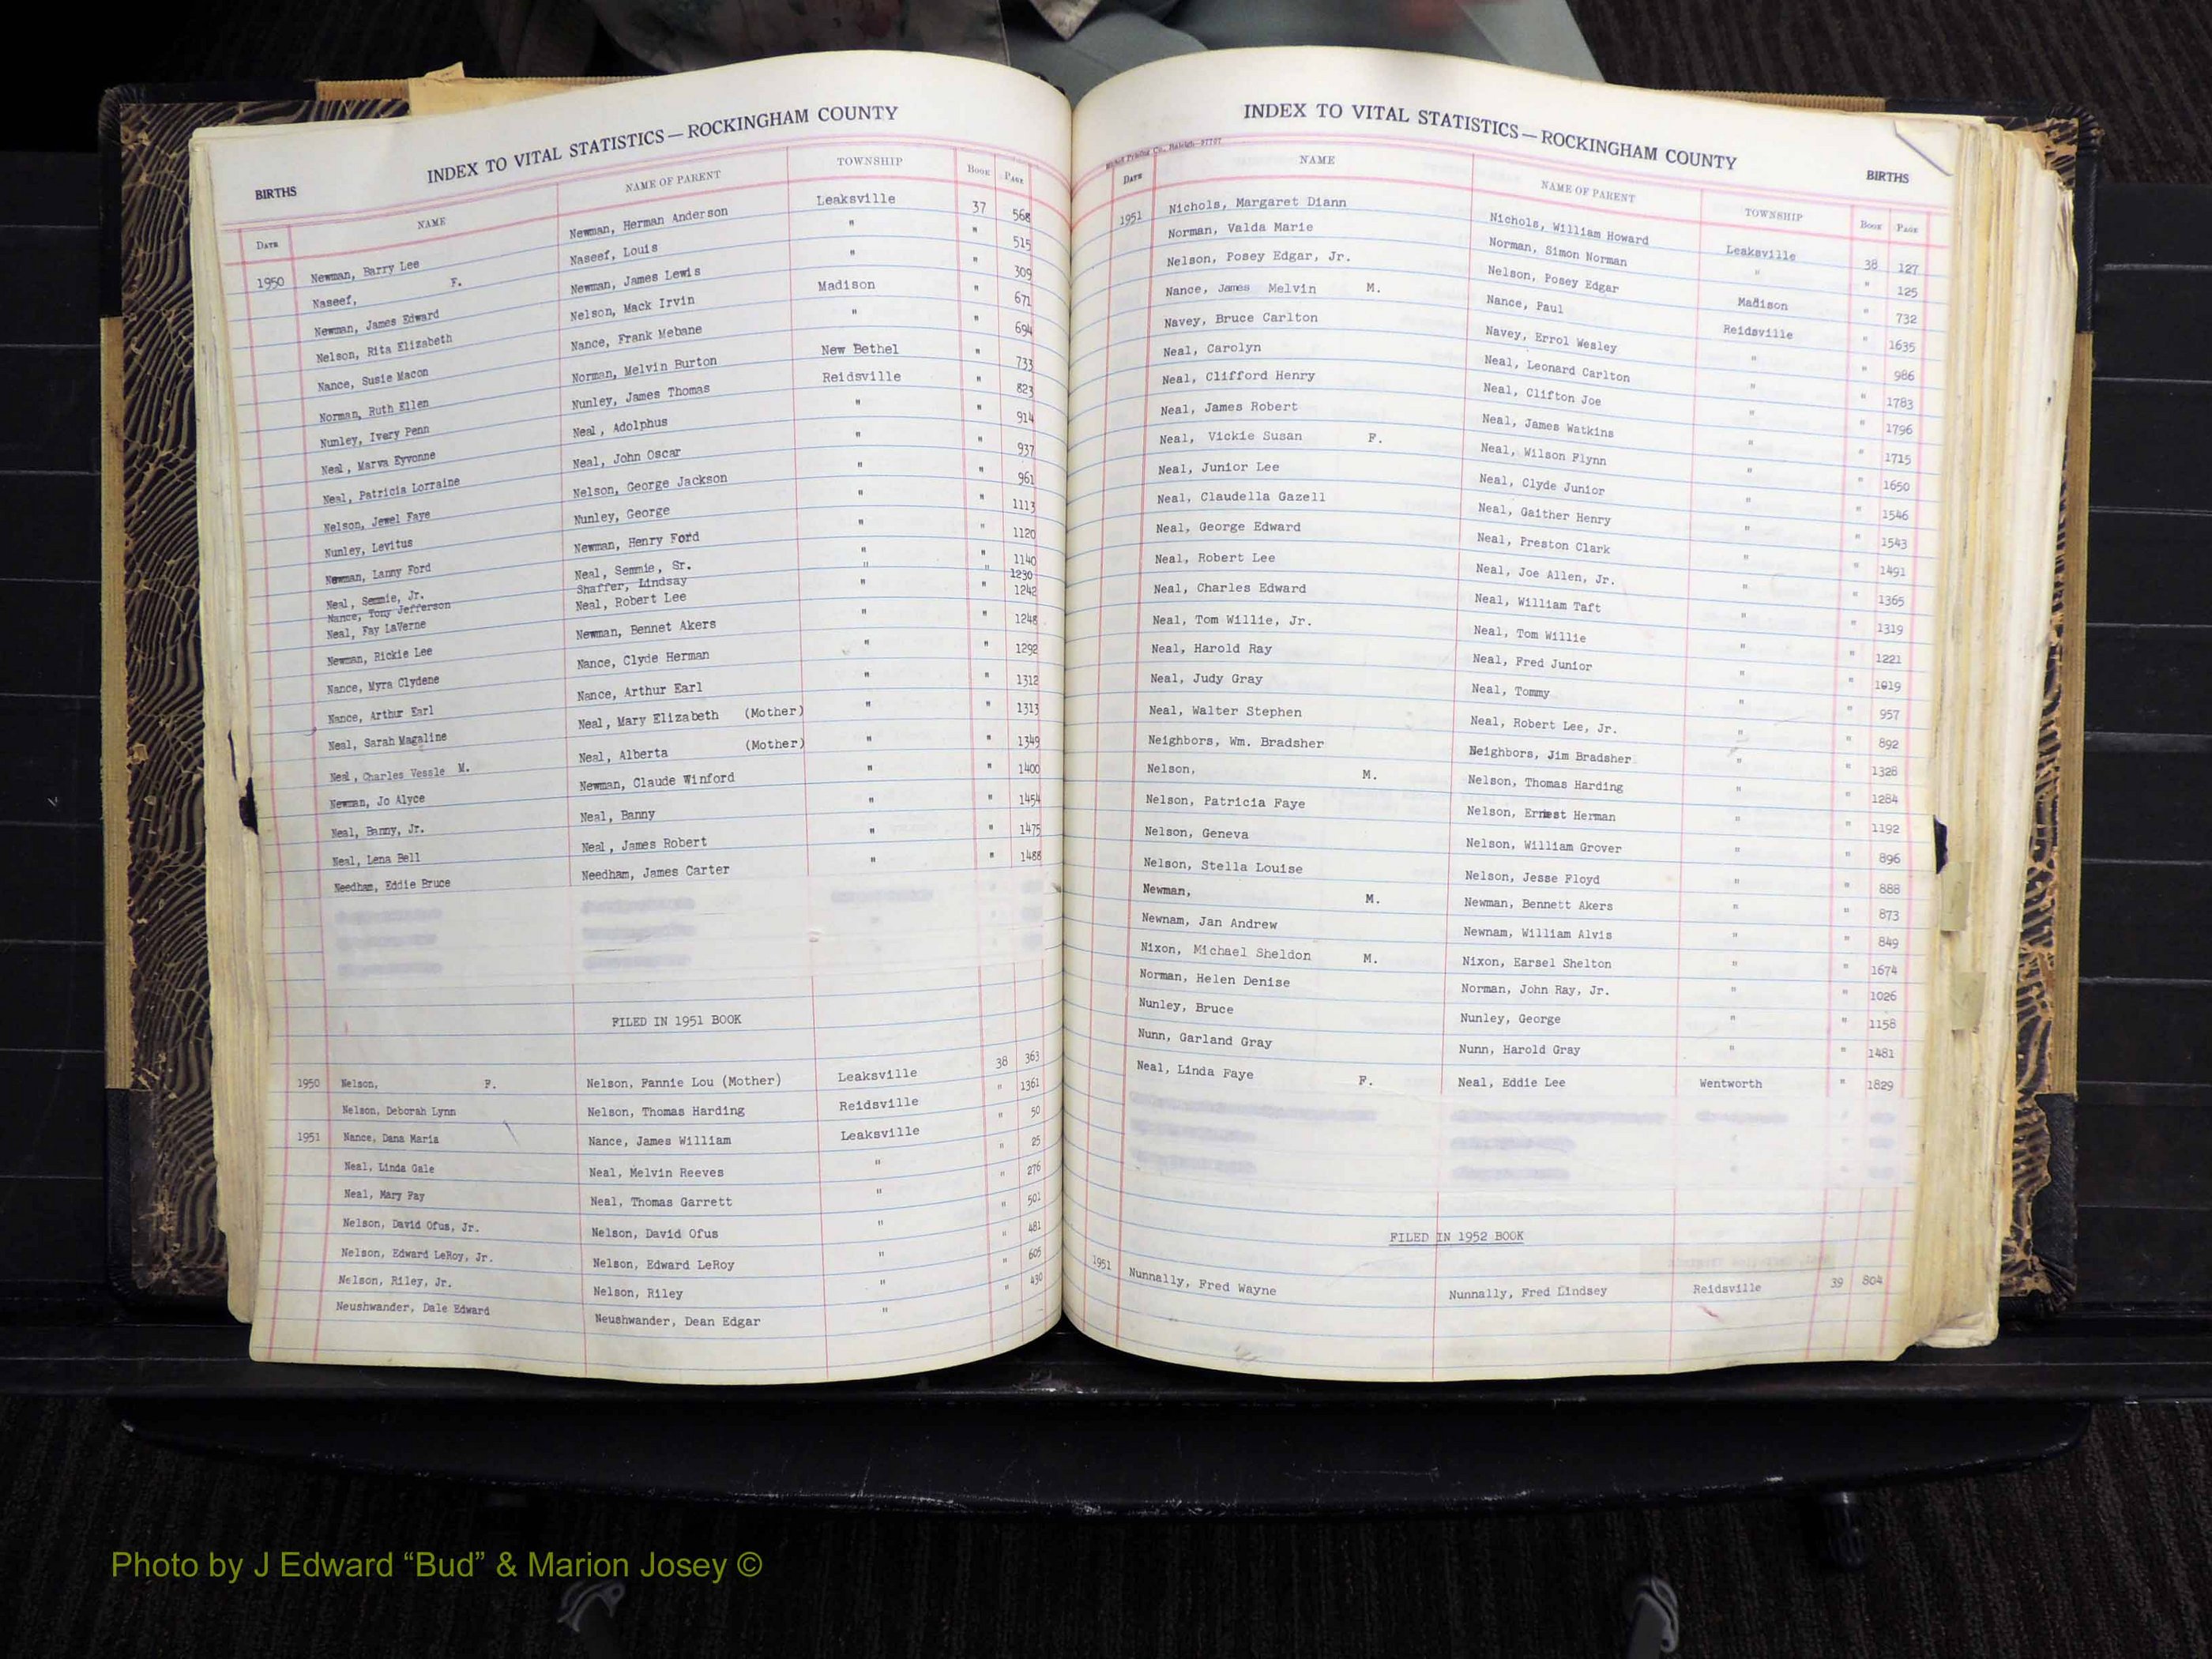 INDEX TO VITAL STATISTICS — ROCKINGHAM COUNTY
BIRTHS
DATE NAME NAME OF PARENT TOWNSHIP BOOK PAGE
1950 Newman, Barry Lee Newman, Herman Anderson Leaksville 37 568
Naseef, F. Naseef, Louis " " 515
Newman, James Edward Newman, James Lewis " " 309
Nelson, Rita Elizabeth Nelson, Mack Irvin Madison " 671
Nance, Susie Macon Nance, Frank Mebane " " 694
Norman, Ruth Ellen Norman, Melvin Burton New Bethel " 733
Nunley, Ivery Penn Nunley, James Thomas Reidsville " 823
Neal, Marva Eyvonne Neal, Adolphus " " 914
Neal, Patricia Lorraine Neal, John Oscar " " 937
Nelson, Jewel Faye Nelson, George Jackson " " 961
Nunley, Levitus Nunley, George " " 1113
Newman, Lanny Ford Newman, Henry Ford " " 1120
Neal, Semmie, Jr. Neal, Semmie, Sr. " " 1140
Nance, Tony Jefferson Shaffer, Lindsay " " 1230
Neal, Fay LaVerne Neal, Robert Lee " " 1242
Newman, Rickie Lee Newman, Bennet Akers " " 1248
Nance, Myra Clydene Nance, Clyde Herman " " 1292
Nance, Arthur Earl Nance, Arthur Earl " " 1312
Neal, Sarah Magaline Neal, Mary Elizabeth (Mother) " " 1313
Neal, Charles Vessle M. Neal, Alberta (Mother) " " 1349
Newman, Jo Alyce Newman, Claude Winford " " 1400
Neal, Banny, Jr. Neal, Banny " " 1454
Neal, Lena Bell Neal, James Robert " " 1475
Needham, Eddie Bruce Needham, James Carter " " 1488
FILED IN 1951 BOOK
1950 Nelson, F. Nelson, Fannie Lou (Mother) Leaksville 38 363
Nelson, Deborah Lynn Nelson, Thomas Harding Reidsville " 1361
1951 Nance, Dana Maria Nance, James William Leaksville " 50
Neal, Linda Gale Neal, Melvin Reeves " " 25
Neal, Mary Fay Neal, Thomas Garrett " " 276
Nelson, David Ofus, Jr. Nelson, David Ofus " " 501
Nelson, Edward LeRoy, Jr. Nelson, Edward LeRoy " " 481
Nelson, Riley, Jr. Nelson, Riley " " 605
Neushwander, Dale Edward Neushwander, Dean Edgar " " 430
INDEX TO VITAL STATISTICS — ROCKINGHAM COUNTY
Printing Co., Raleigh—
BIRTHS
DATE NAME NAME OF PARENT TOWNSHIP BOOK PAGE
1951 Nichols, Margaret Diann Nichols, William Howard Leaksville 38 127
Norman, Valda Marie Norman, Simon Norman " " 125
Nelson, Posey Edgar, Jr. Nelson, Posey Edgar Madison " 732
Nance, James Melvin M. Nance, Paul Reidsville " 1635
Navey, Bruce Carlton Navey, Errol Wesley " " 986
Neal, Carolyn Neal, Leonard Carlton " " 1783
Neal, Clifford Henry Neal, Clifton Joe " " 1796
Neal, James Robert Neal, James Watkins " " 1715
Neal, Vickie Susan F. Neal, Wilson Flynn " " 1650
Neal, Junior Lee Neal, Clyde Junior " " 1546
Neal, Claudella Gazell Neal, Gaither Henry " " 1543
Neal, George Edward Neal, Preston Clark " " 1491
Neal, Robert Lee Neal, Joe Allen, Jr. " " 1365
Neal, Charles Edward Neal, William Taft " " 1319
Neal, Tom Willie, Jr. Neal, Tom Willie " " 1221
Neal, Harold Ray Neal, Fred Junior " " 1019
Neal, Judy Gray Neal, Tommy " " 957
Neal, Walter Stephen Neal, Robert Lee, Jr. " " 892
Neighbors, Wm. Bradsher Neighbors, Jim Bradsher " " 1328
Nelson, M. Nelson, Thomas Harding " " 1284
Nelson, Patricia Faye Nelson, Ernest Herman " " 1192
Nelson, Geneva Nelson, William Grover " " 896
Nelson, Stella Louise Nelson, Jesse Floyd " " 888
Newman, M. Newman, Bennett Akers " " 873
Newnam, Jan Andrew Newnam, William Alvis " " 849
Nixon, Michael Sheldon M. Nixon, Earsel Shelton " " 1674
Norman, Helen Denise Norman, John Ray, Jr. " " 1026
Nunley, Bruce Nunley, George " " 1158
Nunn, Garland Gray Nunn, Harold Gray " " 1481
Neal, Linda Faye F. Neal, Eddie Lee Wentworth " 1829
FILED IN 1952 BOOK
1951 Nunnally, Fred Wayne Nunnally, Fred Lindsey Reidsville 39 804
Photo by J Edward “Bud” & Marion Josey ©